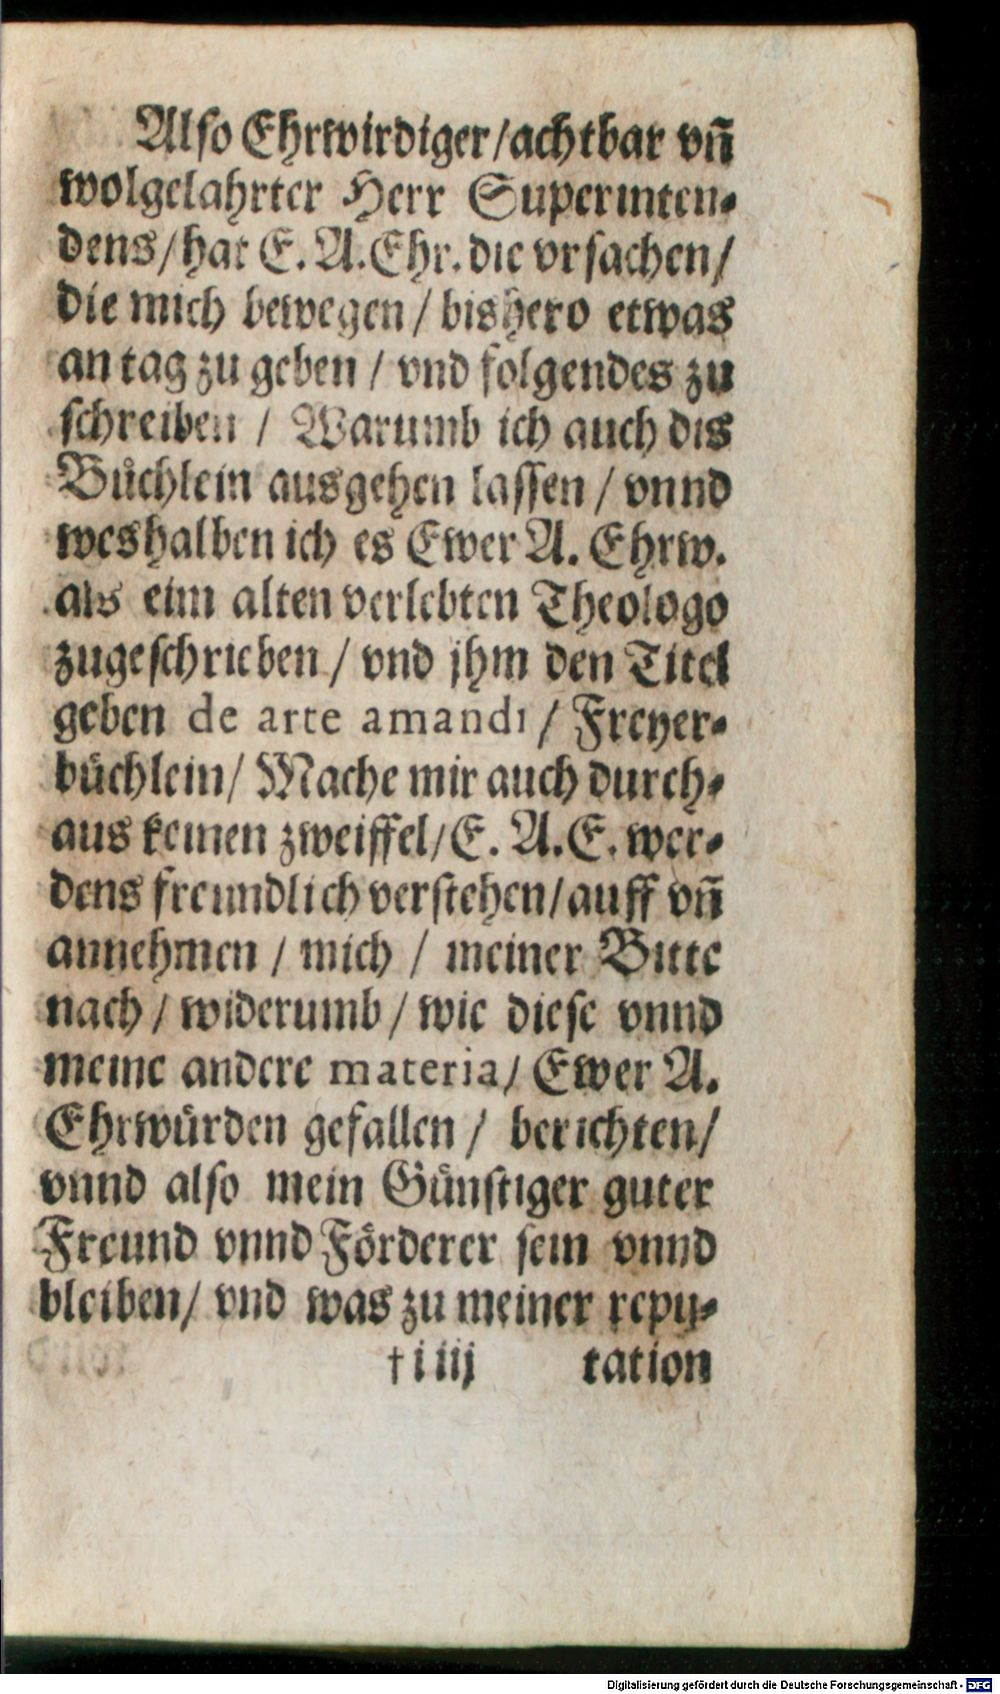 Also Ehrwirdiger/achtbar vn̄
wolgelahrter Herr Superinten-
dens/hat E. A. Ehr. die vrsachen/
die mich bewegen/ bishero etwas
an tag zu geben / vnd folgendes zu
schreiben / Warumb ich auch dis
Buͤchlein ausgehen lassen / vnnd
weshalben ich es Ewer A. Ehrw.
als eim alten verlebten Theologo
zugeschrieben / vnd jhm den Titel
geben de arte amandi / Freyer-
buͤchlein/ Mache mir auch durch-
aus keinen zweiffel/E. A. E. wer-
dens freundlich verstehen/auff vn̄
annehmen / mich / meiner Bitte
nach / widerumb / wie diese vnnd
meine andere materia/ Ewer A.
Ehrwuͤrden gefallen / berichten/
vnnd also mein Guͤnstiger guter
Freund vnnd Foͤrderer sein vnnd
bleiben/ vnd was zu meiner repu-
† iiij tation
Digitalisierung gefördert durch die Deutsche Forschungsgemeinschaft - DFG